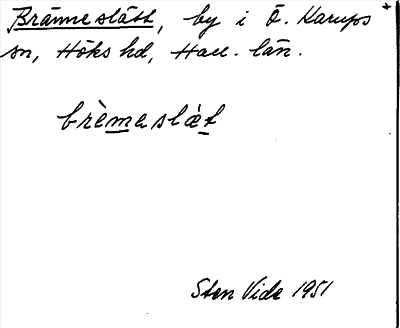 Bränneslätt, by i Ö. Karups +
sn, Höks hd, Hall. län.
brèmeslǽt
Sten Vide 1951